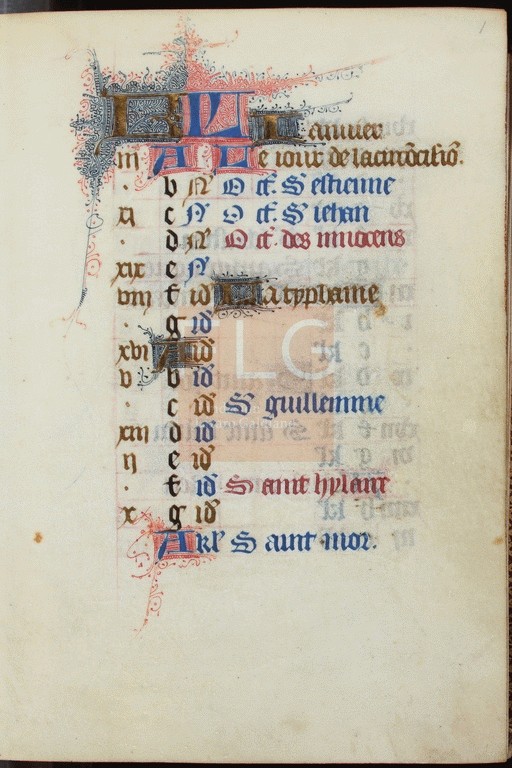 1
KL Januier
iii A Le iour de la circōcisiō.
. b N̄ Oct. S estienne
xi c N̄ Oct. S iehan
. d N̄ Oct. des innocens
xix e N̄
viii f id La typhaine
. g id
xvi A id
v b id
. c id S guillemme
xiii d id
ii e id
. f id Saint hylaire
x g id
A kl' Saint mor.
TLC